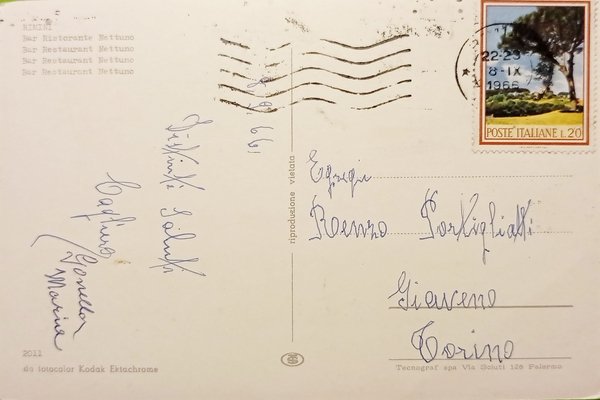 RIMINI
Bar Ristorante Nettuno
Bar Restaurant Nettuno
Bar Restaurant Nettuno
Bar Restaurant Nettuno
8.9.66
Distinti Saluti
Cagliero
Gonella
Maria
riproduzione vietata
22-23
8-IX
1966
POSTE ITALIANE L.20
Egregi
Renzo Portigliatti
Giaveno
Torino
2011
da fotocolor Kodak Ektachrome
Tecnograf spa Via Scluti 126 Palermo